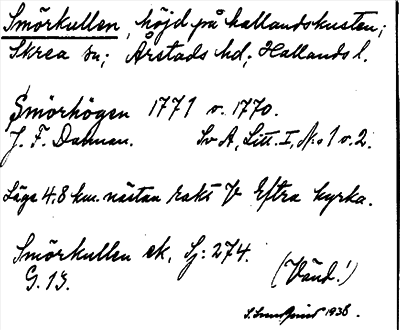 Smörkullen, höjd på hallandskusten;
Skrea sn; Årstads hd; Hallands l.
Smörhögen 1771 o. 1770.
J. F. Dahman. Sv A, Litt. I, No 1 o. 2.
Läge 4.8 km. nästan rakt V Eftra kyrka.
Smörkullen ek. Sj: 274.
G. 13.
(Vänd!)
1938.